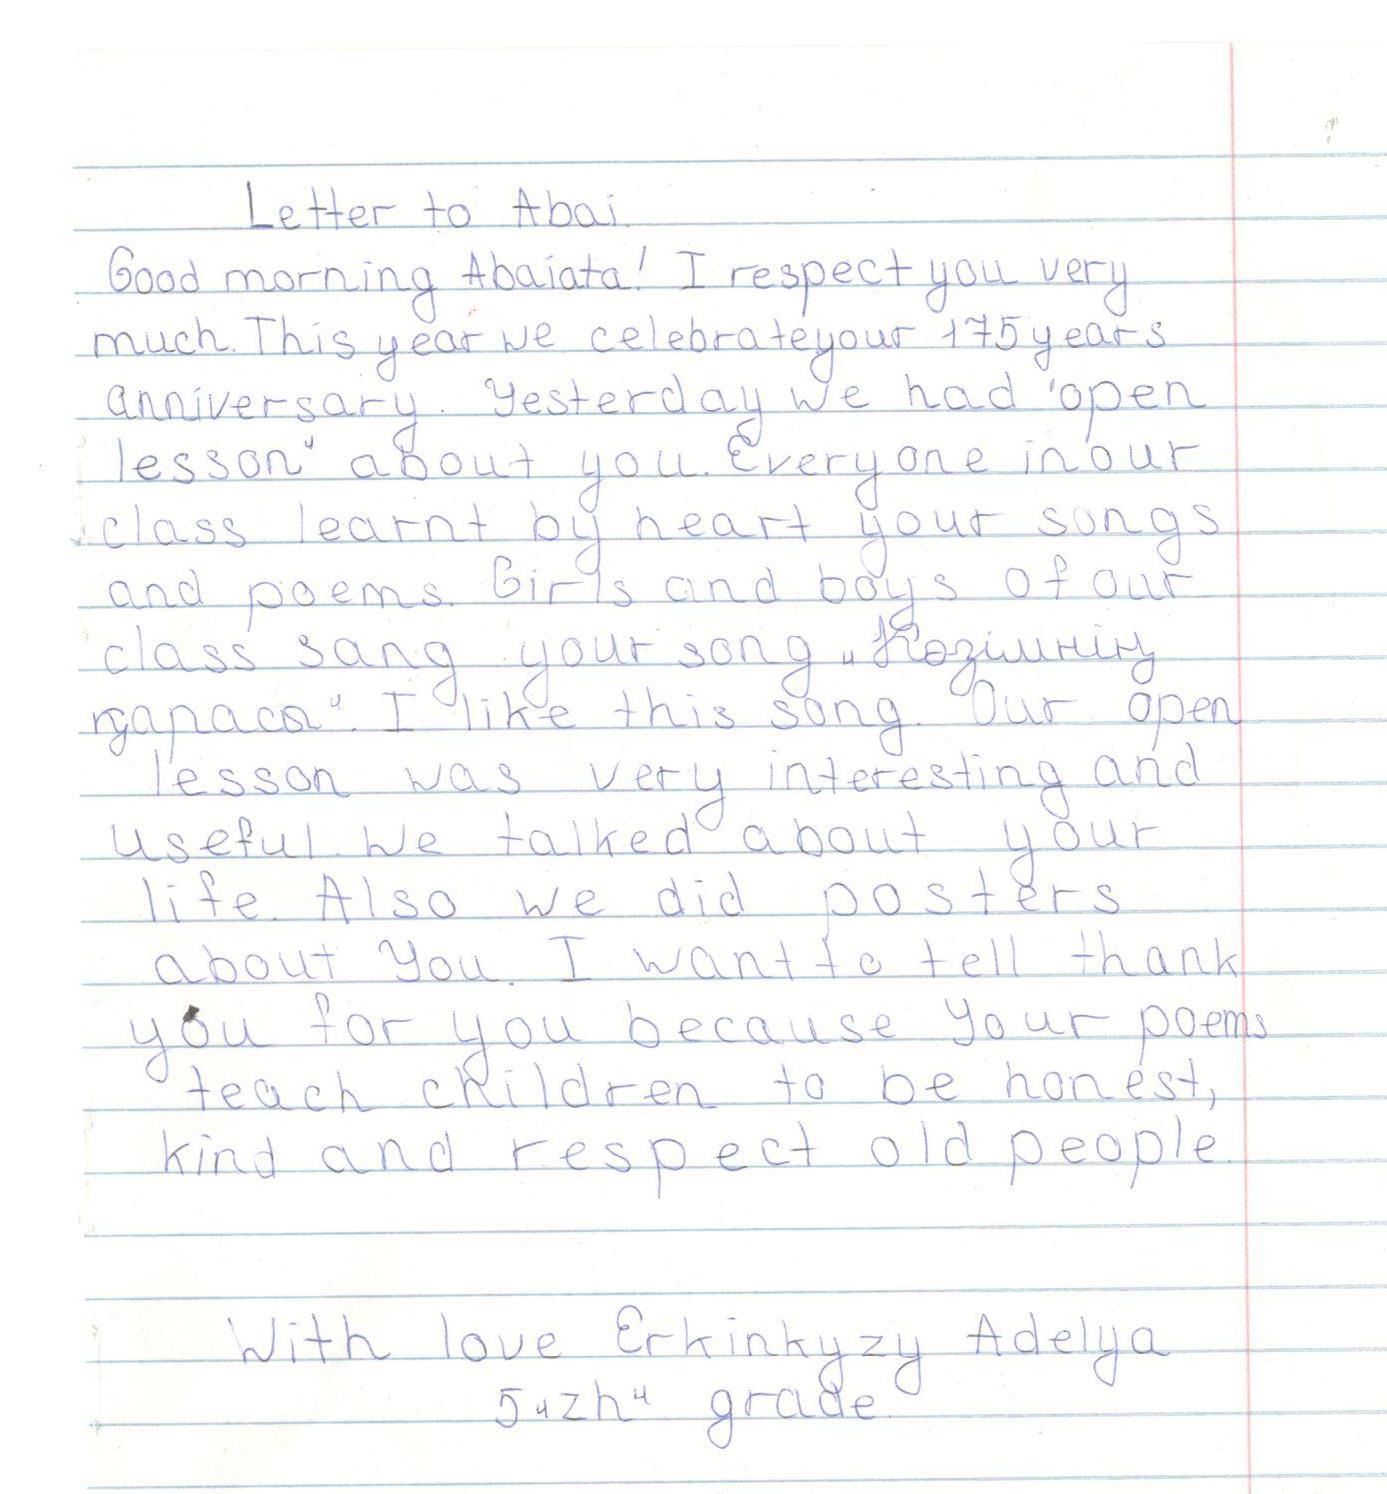 Letter to Abai.
Good morning Abaiata! I respect you very
much. This year we celebrate your 175 years
anniversary. Yesterday we had "open
lesson" about you. Everyone in our
class learnt by heart your songs
and poems. Girls and boys of our
class sang your song „Көзімнің
қарасы". I like this song. Our open
lesson was very interesting and
useful. We talked about your
life. Also we did posters
about you. I want to tell thank
you for you because your poems
teach children to be honest,
kind and respect old people.
With love Erkinkyzy Adelya
5 „zh" grade.